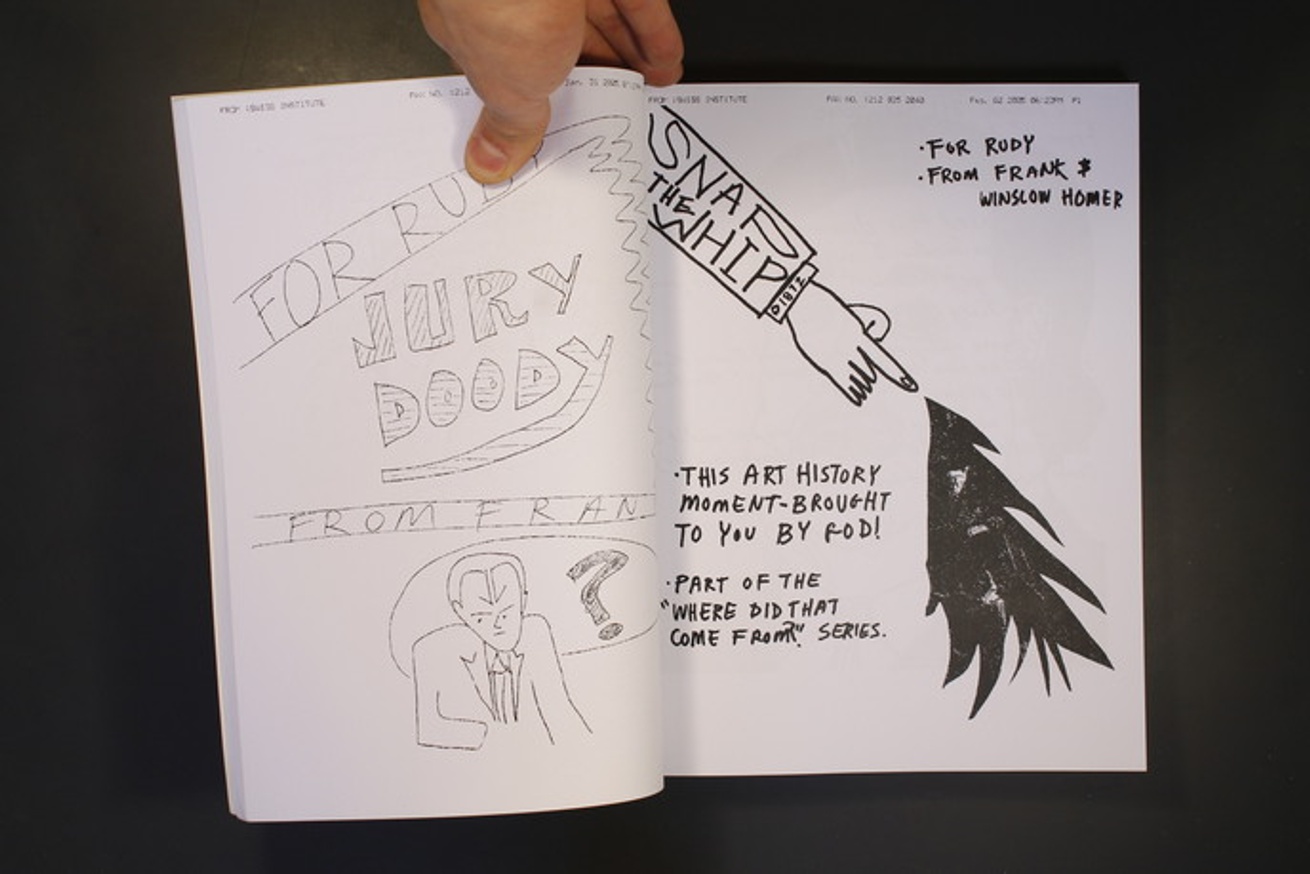 FROM : SWISS INSTITUTE
FAX NO. : 212
Jan. 31 2005
FOR RUDY
JURY
DOODY
FROM FRAN
?
FROM : SWISS INSTITUTE
FAX NO. : 212 925 2040
Feb. 02 2005 06:23PM P1
· FOR RUDY
· FROM FRANK &
WINSLOW HOMER
SNAP
THE
WHIP
©1872
· THIS ART HISTORY
MOMENT-BROUGHT
TO YOU BY FOD!
· PART OF THE
"WHERE DID THAT
COME FROM?" SERIES.